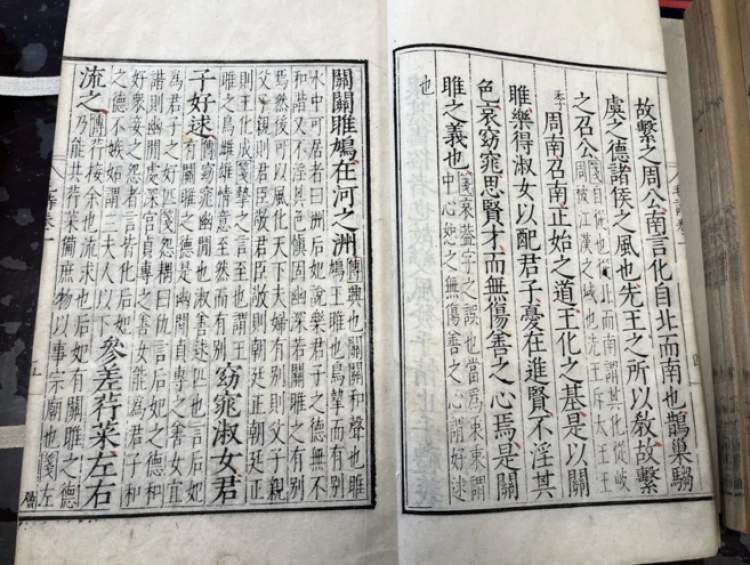 故繫之周公南言化自北而南也鵲巢騶
虞之德諸侯之風也先王之所以敎故繫
之召公箋自從也從北而南謂其化從岐
周被江漢之域也先王斥大王王
季
周南召南正始之道王化之基是以關
雎樂得淑女以配君子憂在進賢不淫其
色哀窈窕思賢才而無傷善之心焉是關
雎之義也箋哀蓋字之誤也當爲衷衷謂
中心恕之無傷善之心謂好逑
也
關關雎鳩在河之洲傳興也關關和聲也雎
鳩王雎也鳥摯而有別
水中可居者曰洲后妃說樂君子之德無不
和諧又不淫其色愼固幽深若關雎之有別
焉然後可以風化天下夫婦有別則父子親
父子親則君臣敬君臣敬則朝廷正朝廷正
則王化成箋摯之言至也謂王
雎之鳥雌雄情意至然而有別窈窕淑女君
子好逑傳窈窕幽閒也淑善逑匹也言后妃
有關雎之德是幽閒貞專之善女宜
爲君子之好匹箋怨耦曰仇言后妃之德和
諧則幽閒處深宮貞專之善女能爲君子和
好衆妾之怨者言皆化后妃
之德不嫉妬謂三夫人以下參差荇菜左右
流之傳荇接余也流求也后妃有關雎之德
乃能共荇菜備庶物以事宗廟也箋左
毛詩卷一
五